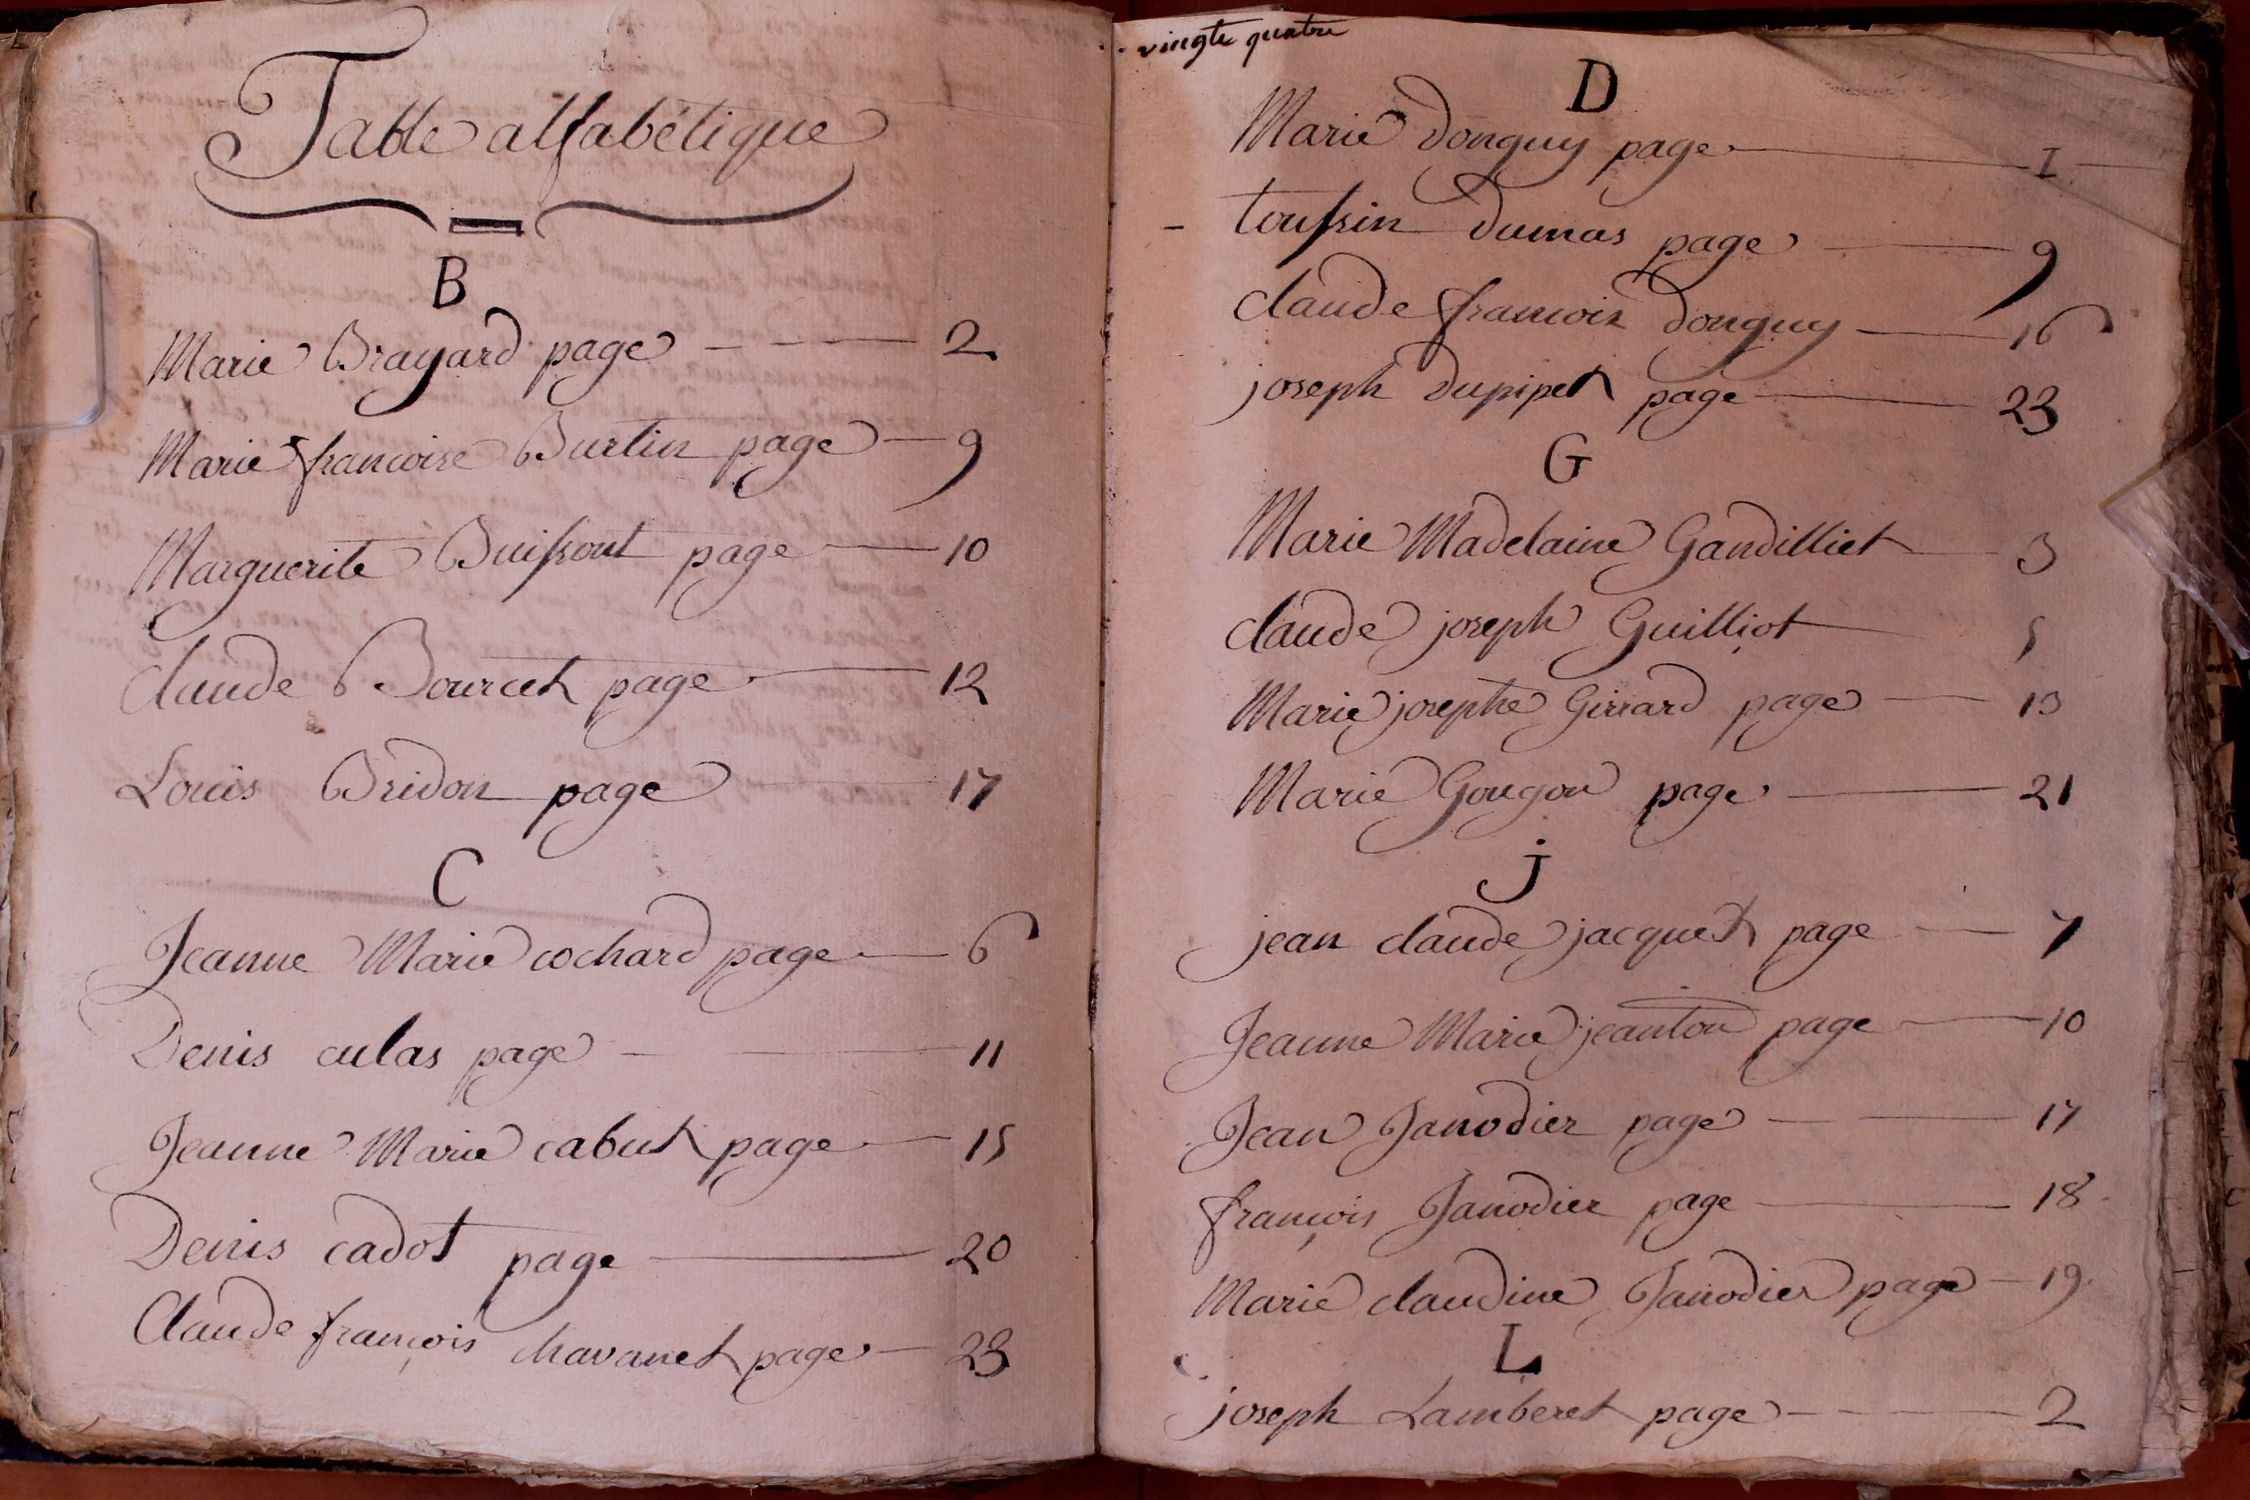 Table alfabétique
B
Marie Brayard page 2
Marie francoise Burtin page 9
Marguerite Buissont page 10
Claude Bourcet page 12
Louis Bridon page 17
C
Jeanne Marie cochard page 6
Denis culas page 11
Jeanne Marie cabut page 15
Denis cadot page 20
Claude françois chavanet page 23
vingte quatre
D
Marie donguy page I
toussin dumas page 9
claude francois donguy 16
joseph dupipet page 23
G
Marie Madelaine Gandilliet 3
claude joseph Guilliot 5
Marie josephe Girrard page 13
Marie Gougon page 21
j
jean claude jacquet page 7
Jeanne Marie jeanton page 10
Jean Janodier page 17
françois Janodier page 18
Marie claudine Janodier page 19
L
joseph Lamberet page 2